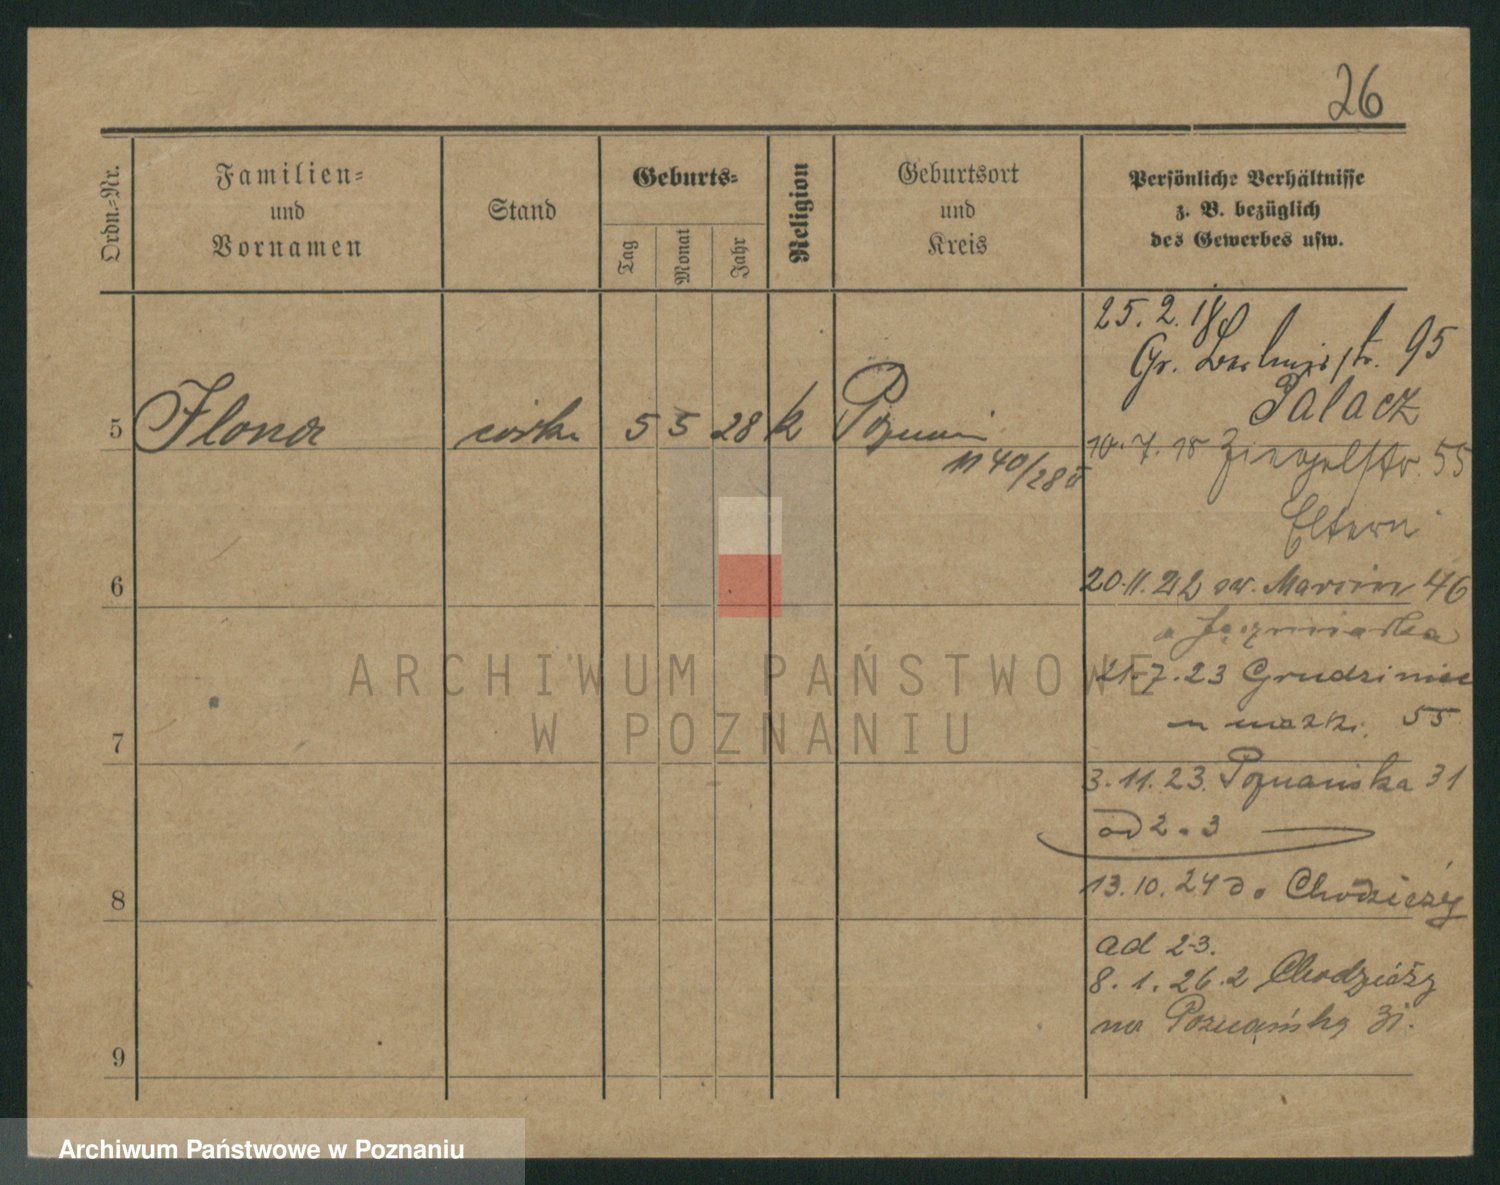 26
Ordn.-Nr.
Familien-
und
Vornamen
Stand
Geburts-
Tag
Monat
Jahr
Religion
Geburtsort
und
Kreis
Persönliche Verhältnisse
z. B. bezüglich
des Gewerbes usw.
25. 2. 18
Gr. Berlinerstr. 95
Palacz
5 Ilona córka 5 5 28 k Poznań
40/28
10. 7. 18 Ziegelstr. 55
Eltern
6
20. 11. 22 św. Marcin 46
21. 7. 23 Grudzieniec
55
7
3. 11. 23. Poznańska 31
od 2 - 3
8
13. 10. 24 do Chodzieży
ad 2-3.
8. 1. 26. z Chodzieży
na Poznańską 31.
9
ARCHIWUM PAŃSTWOWE
W POZNANIU
Archiwum Państwowe w Poznaniu